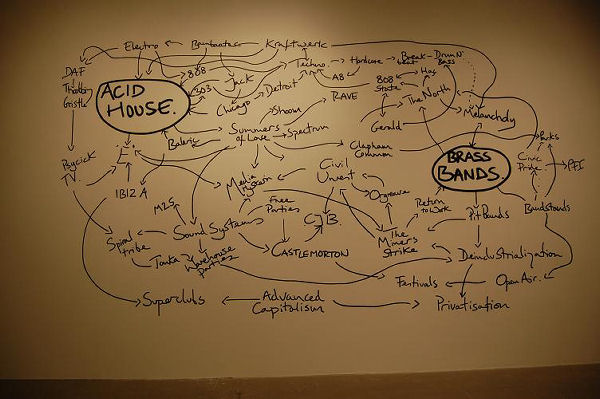 Electro
Bambaataa
Kraftwerk
DAF
808
Techno
Hardcore
Break-
beat
Drum N
Bass
Throbbing
Gristle
ACID
HOUSE.
303
Jack
Detroit
A8
808
State
Hac
Chicago
Shoom
RAVE
The North
Melancholy
Summer
of Love
Spectrum
Gerald
Balearic
Clapham
Common
Parks
E
Psychick
TV.
Media
Civil
Unrest
BRASS
BANDS.
Civic
Pride.
PFI
IBIZA
M25
Free
Parties
Orgreave
Return
to Work
Pit Bands
Bandstands
CJB.
Spiral
tribe
Sound Systems
The
Miner's
Strike
Tonka
Warehouse
parties
CASTLEMORTON
Deindustrialization
Festivals
Open Air.
Superclubs
Advanced
Capitalism
Privatisation